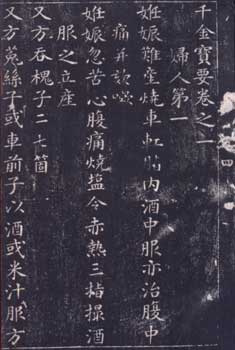 千金寶要卷之一
婦人第一
妊娠難產燒車釭脂內酒中服亦治腹中
痛并欬嗽
妊娠忽苦心腹痛燒鹽令赤熱三指撮酒
服之立
又方吞槐子二七箇
又方菟絲子或車前子以酒或米汁服方